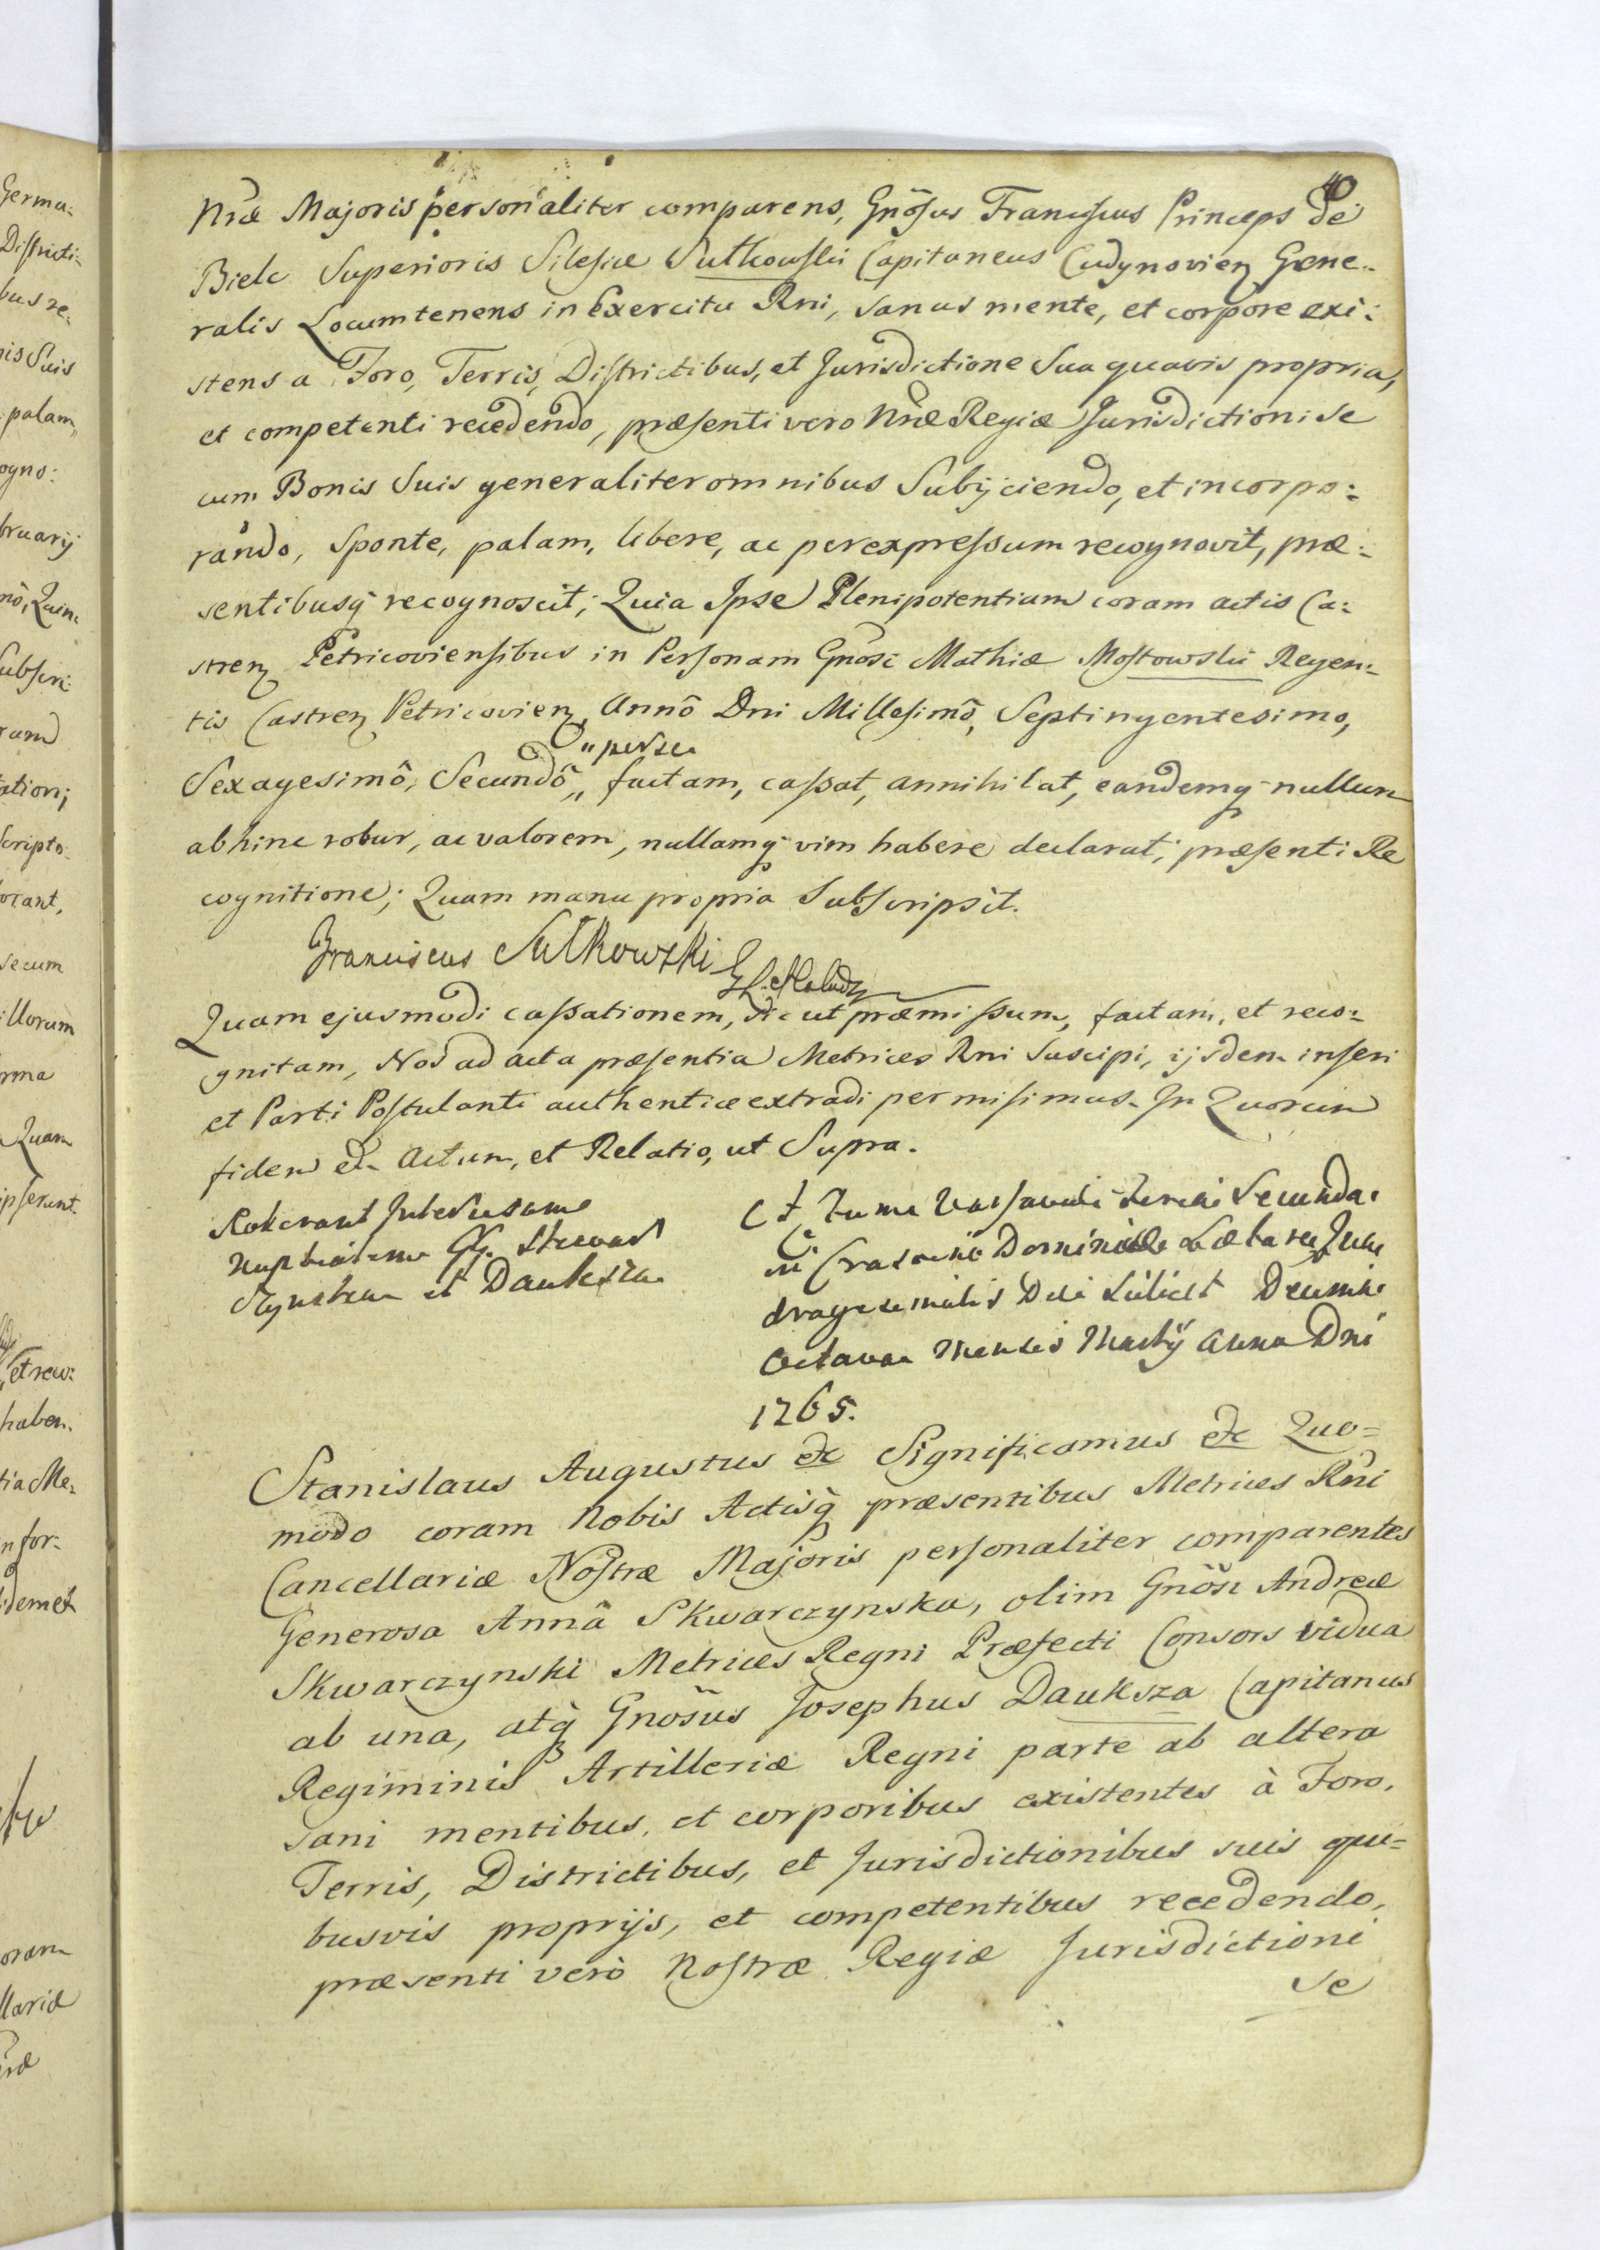 40
Nræ Majoris personaliter comparens, Gnōsus Franciscus Princeps de
Biele Superioris Silesiæ Sulkowski Capitaneus Generalis
ralis Locumtenens in Exercitu Rni, sanus mente, et corpore exi:
stens a Foro, Terris, Districtibus, et Jurisdictione Sua quavis propria,
et competenti recedendo, præsenti vero Nræ Regiæ Jurisdictioni se
cum Bonis Suis generaliter omnibus Subijciendo, et incorpo:
rando, sponte, palam, libere, ac per expressum recognovit, præ:
sentibusq recognoscit; Quia Ipse Plenipotentiam coram actis Ca:
stren Petricoviensibus in Personam Gnosi Mathiæ Mostowski Regen:
tis Castren Petricovien, Annô Dni Millesimô, Septingentesimo,
Sexagesimô, Secundô,, "per se factam, cassat, annihilat, eandemq nullum
abhinc robur, ac valorem, nullamq vim habere declarat; præsenti Re
cognitione; Quam manu propria Subscripsit.
Franciscus Sulkowski
Quam ejusmodi cassationem, sic ut præmissum, factam, et reco:
gnitam, Nos ad acta præsentia Metrices Rni Suscipi, ijsdem inseri
et Parti Postulanti authentice extradi permisimus. In Quorum
fidem &. Actum, et Relatio, ut Supra.
et Dauksza
in Crastino Dominicæ Lætare Qua
dragesimalis Die Scilicet Decima
Octava Mensis Martij Anno Dni
1765.
Stanislaus Augustus &c Significamus &c Quo=
modo coram Nobis Actisq præsentibus Metrices Rni
Cancellariæ Nostræ Majoris personaliter comparentes
Generosa Anna Skwarczynska, olim Gnōsi Andreæ
Skwarczynski Metrices Regni Præfecti Consors vidua
ab una, atq Gnōsus Josephus Dauksza Capitanus
Regiminis Artilleriæ Regni parte ab altera
sani mentibus, et corporibus existentes à Foro,
Terris, Districtibus, et Jurisdictionibus suis qui=
busvis proprijs, et competentibus recedendo,
præsenti verò Nostræ Regiæ Jurisdictioni
se